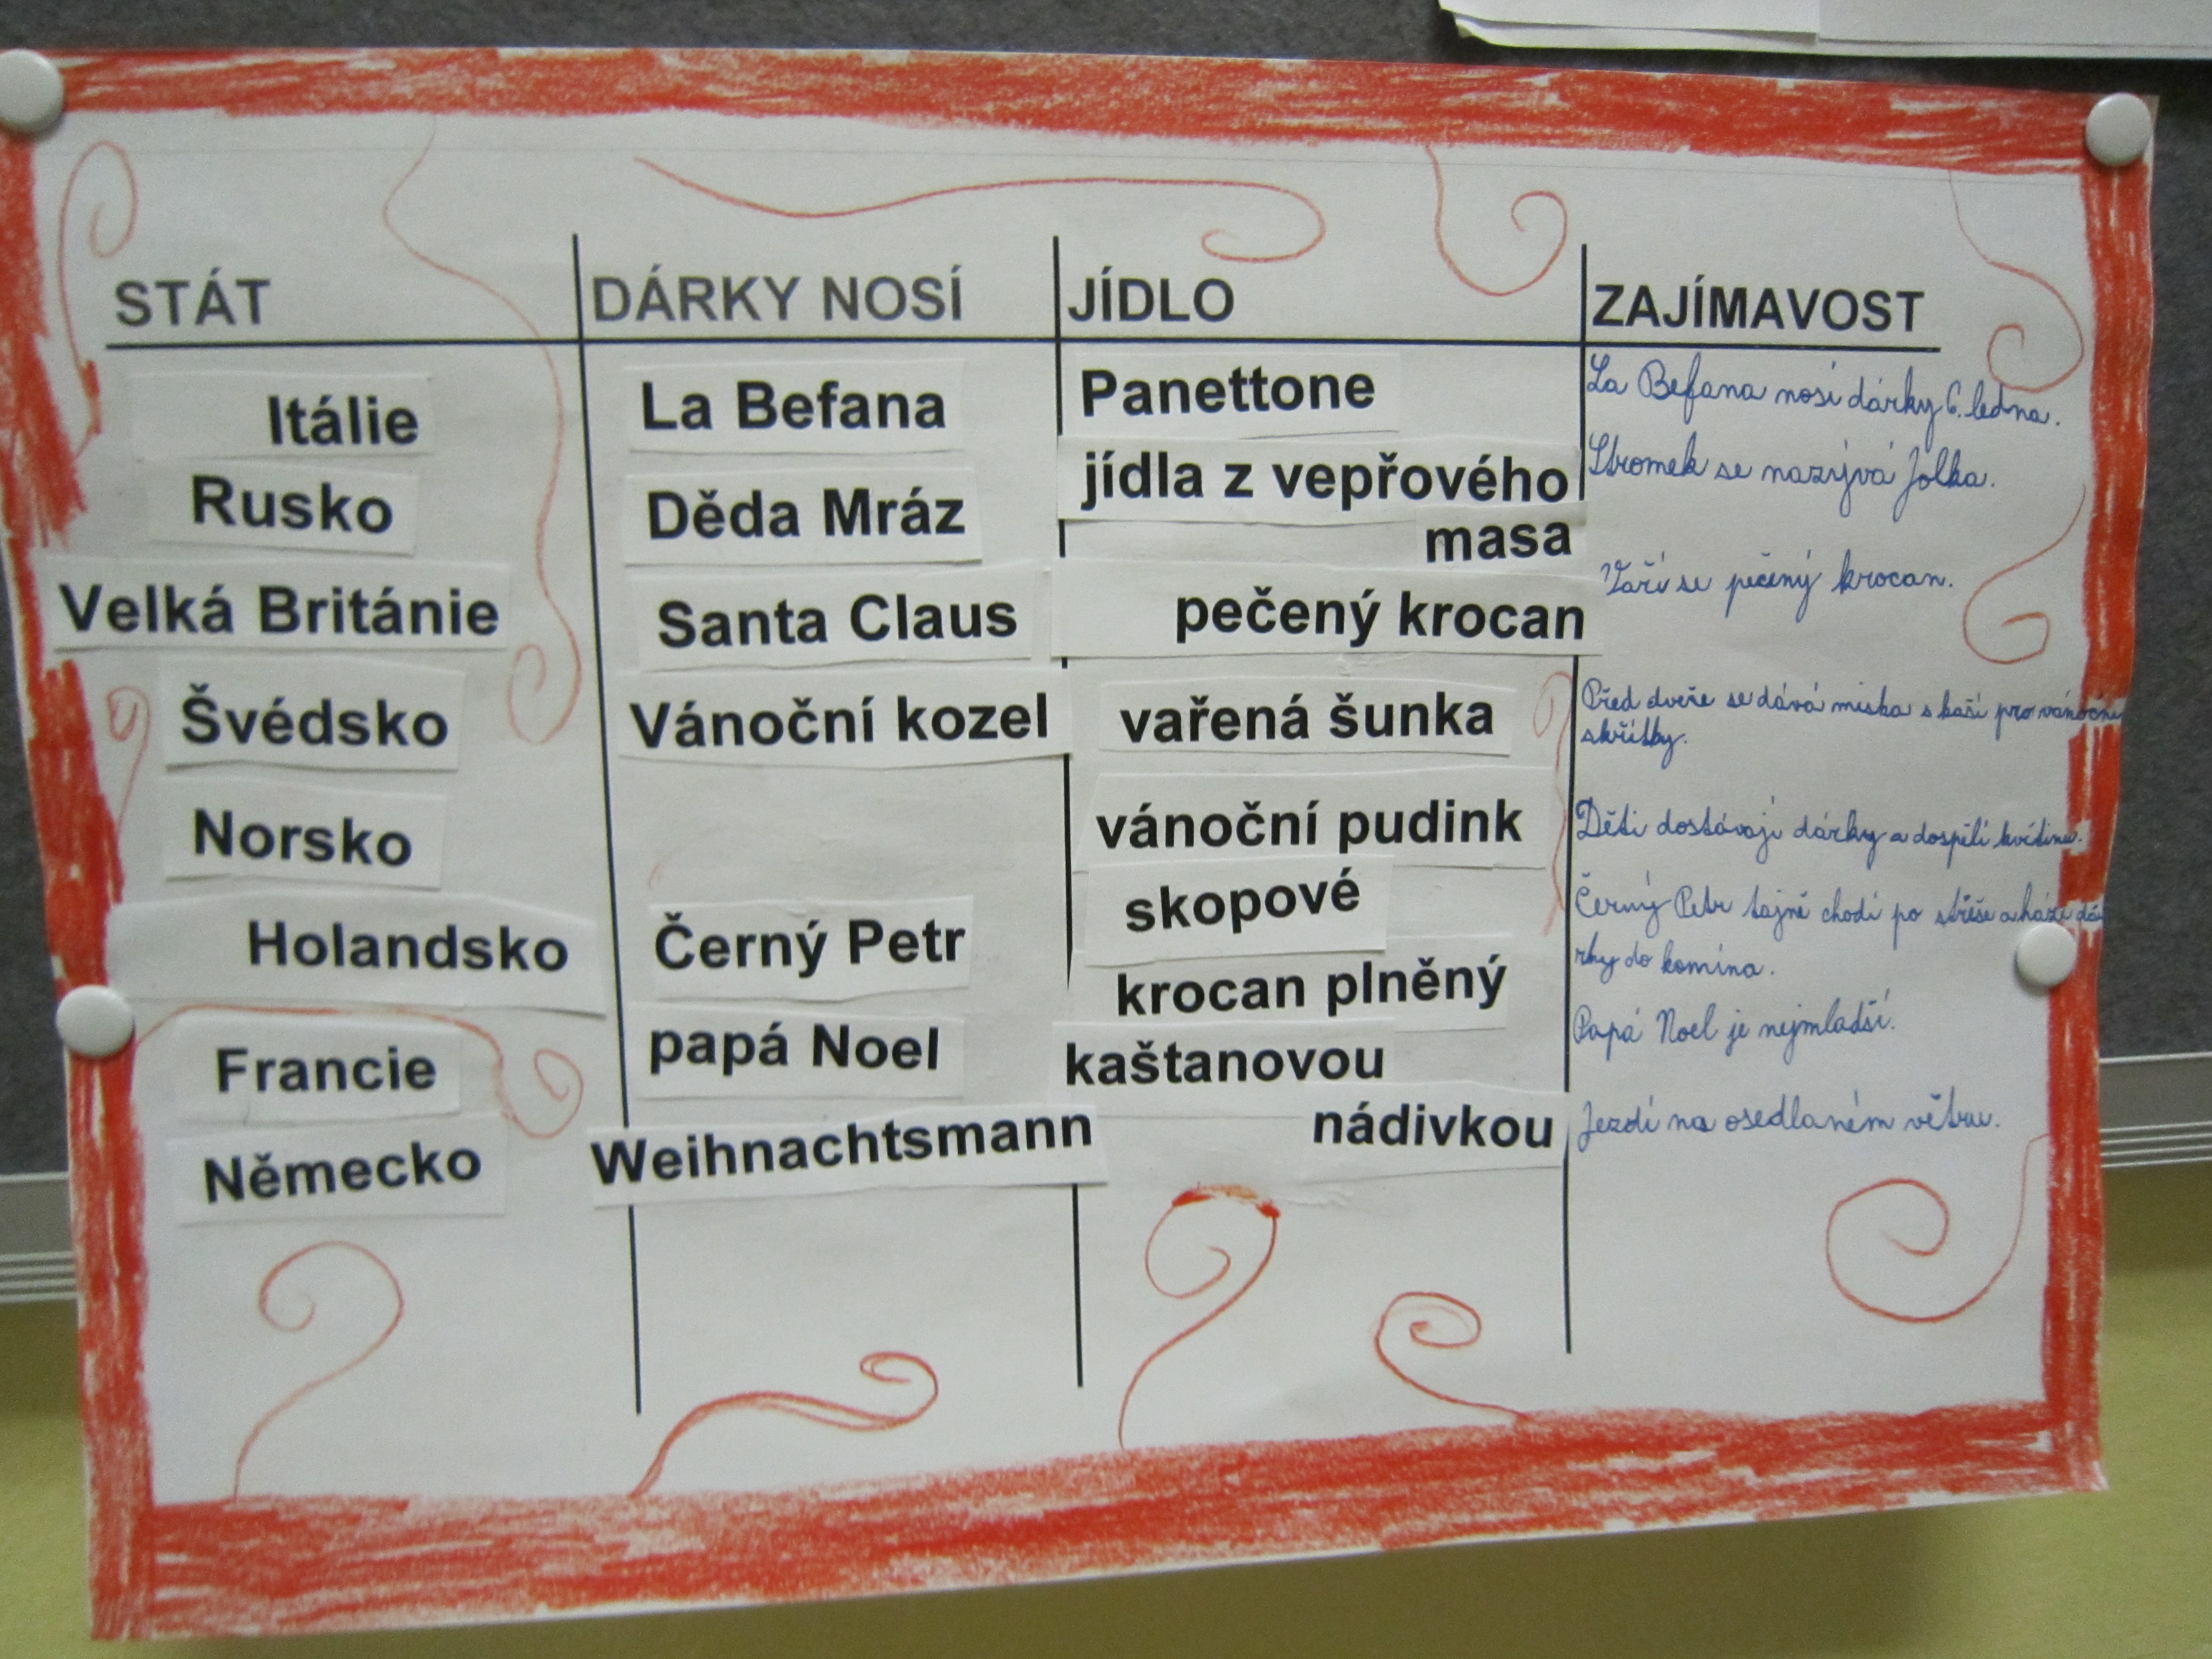 STÁT DÁRKY NOSÍ JÍDLO ZAJÍMAVOST
Itálie La Befana Panettone La Befana nosí dárky 6. ledna.
Rusko Děda Mráz jídla z vepřového Stromek se nazývá Jolka.
masa
Velká Británie Santa Claus pečený krocan Vaří se pečený krocan.
Švédsko Vánoční kozel vařená šunka Před dveře se dává miska s kaší pro vánoční
skřítky.
Norsko vánoční pudink Děti dostávají dárky a dospělí
skopové
Holandsko Černý Petr krocan plněný Černý Petr tajně chodí po střeše a hází dá
rky do komína.
Francie papá Noel kaštanovou Papá Noel je nejmladší.
Německo Weihnachtsmann nádivkou Jezdí na osedlaném větru.